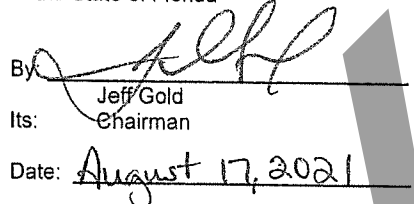 By
Jeff Gold
Its: Chairman
Date: August 17, 2021